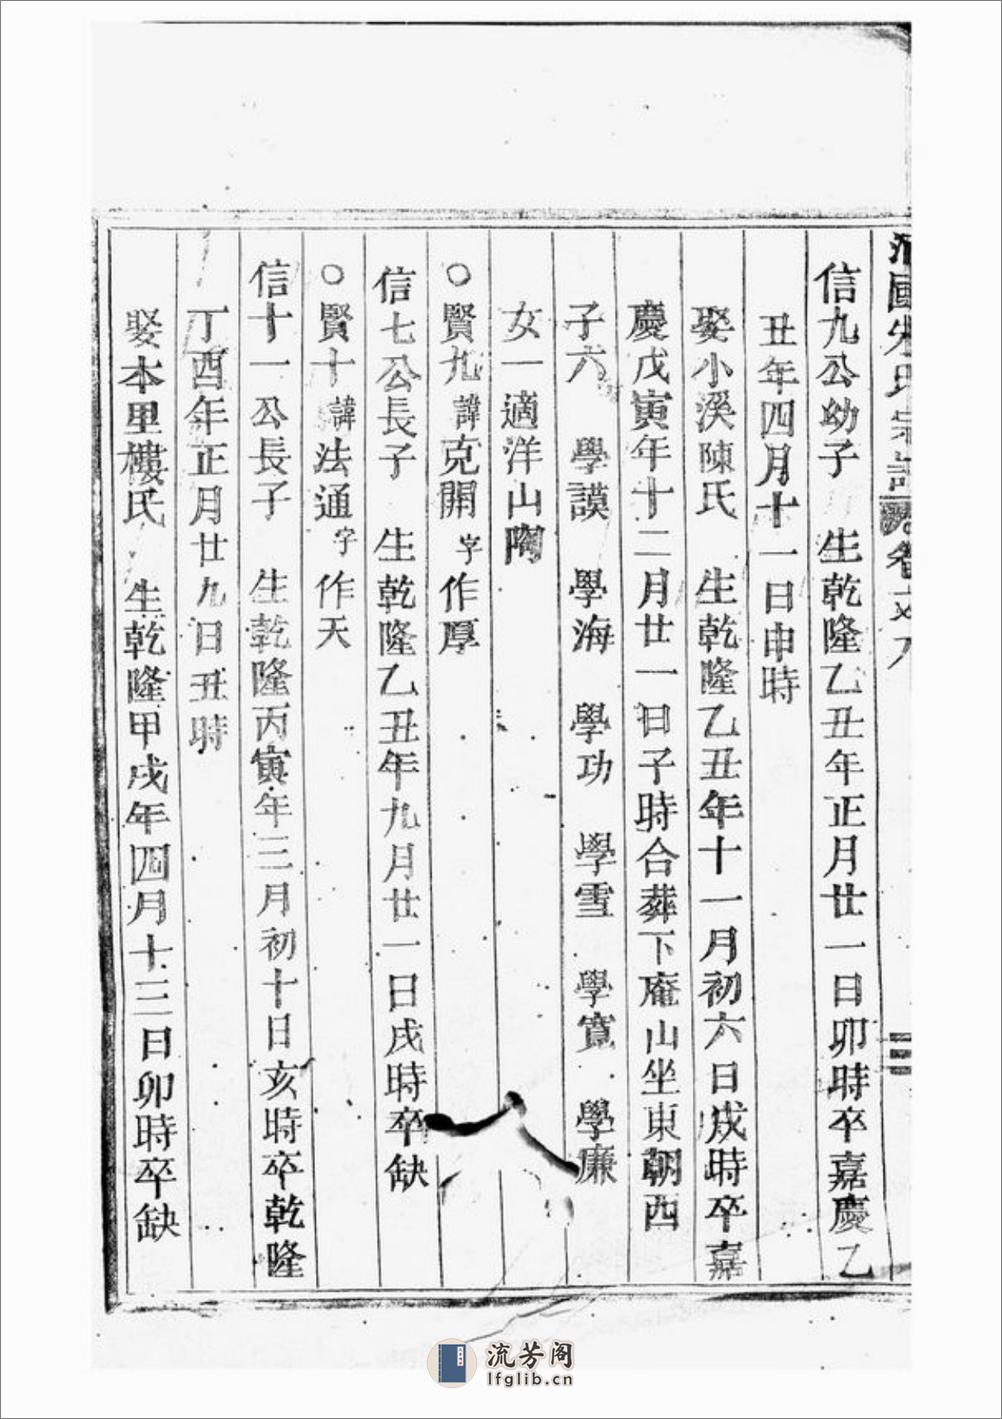 國 氏宗譜 卷之八
信九公幼子 生乾隆乙丑年正月廿一日卯時卒嘉慶乙
丑年四月十一日申時
娶小溪陳氏 生乾隆乙丑年十一月初六日戌時卒嘉
慶戊寅年十二月廿一日子時合葬下庵山坐東朝西
子六 學謨 學海 學功 學雪 學寬 學廉
女一適洋山陶
○賢九諱克開字作厚
信七公長子 生乾隆乙丑年九月廿一日戌時卒缺
○賢十諱法通字作天
信十一公長子 生乾隆丙寅年三月初十日亥時卒乾隆
丁酉年正月廿九日丑時
娶本里樓氏 生乾隆甲戌年四月十三日卯時卒缺
流芳阁
lfglib.cn